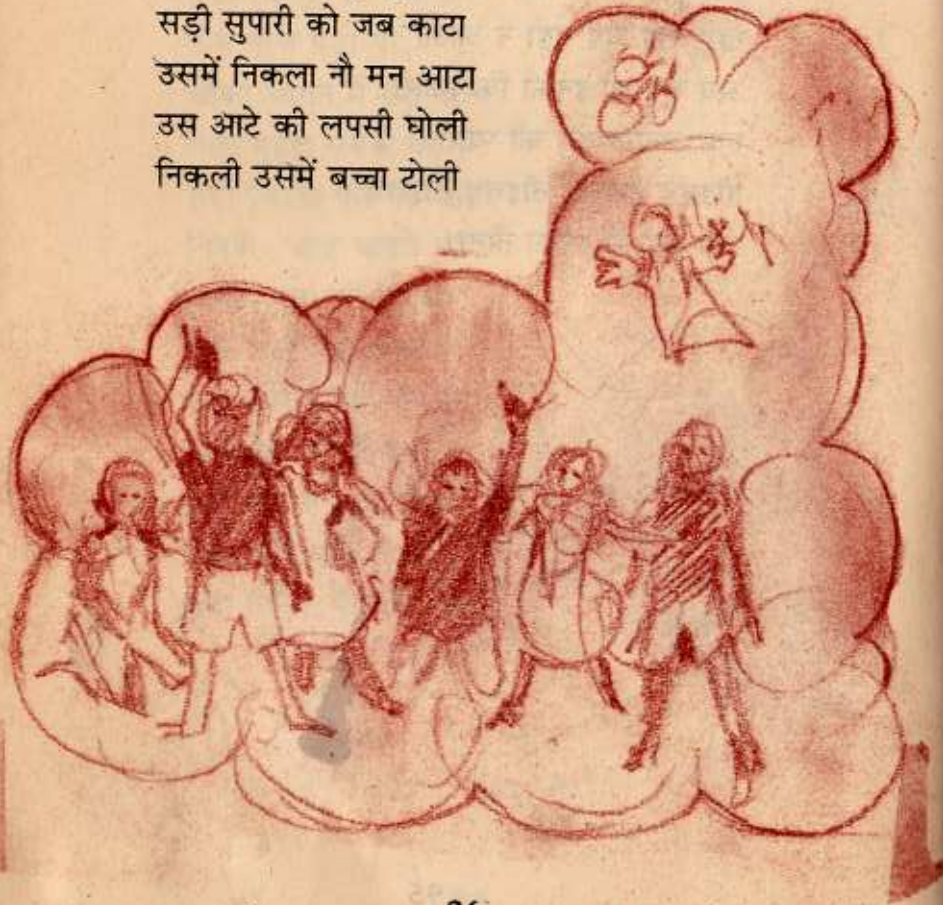 सड़ी सुपारी को जब काटा
उसमें निकला नौ मन आटा
उस आटे की लपसी घोली
निकली उसमें बच्चा टोली